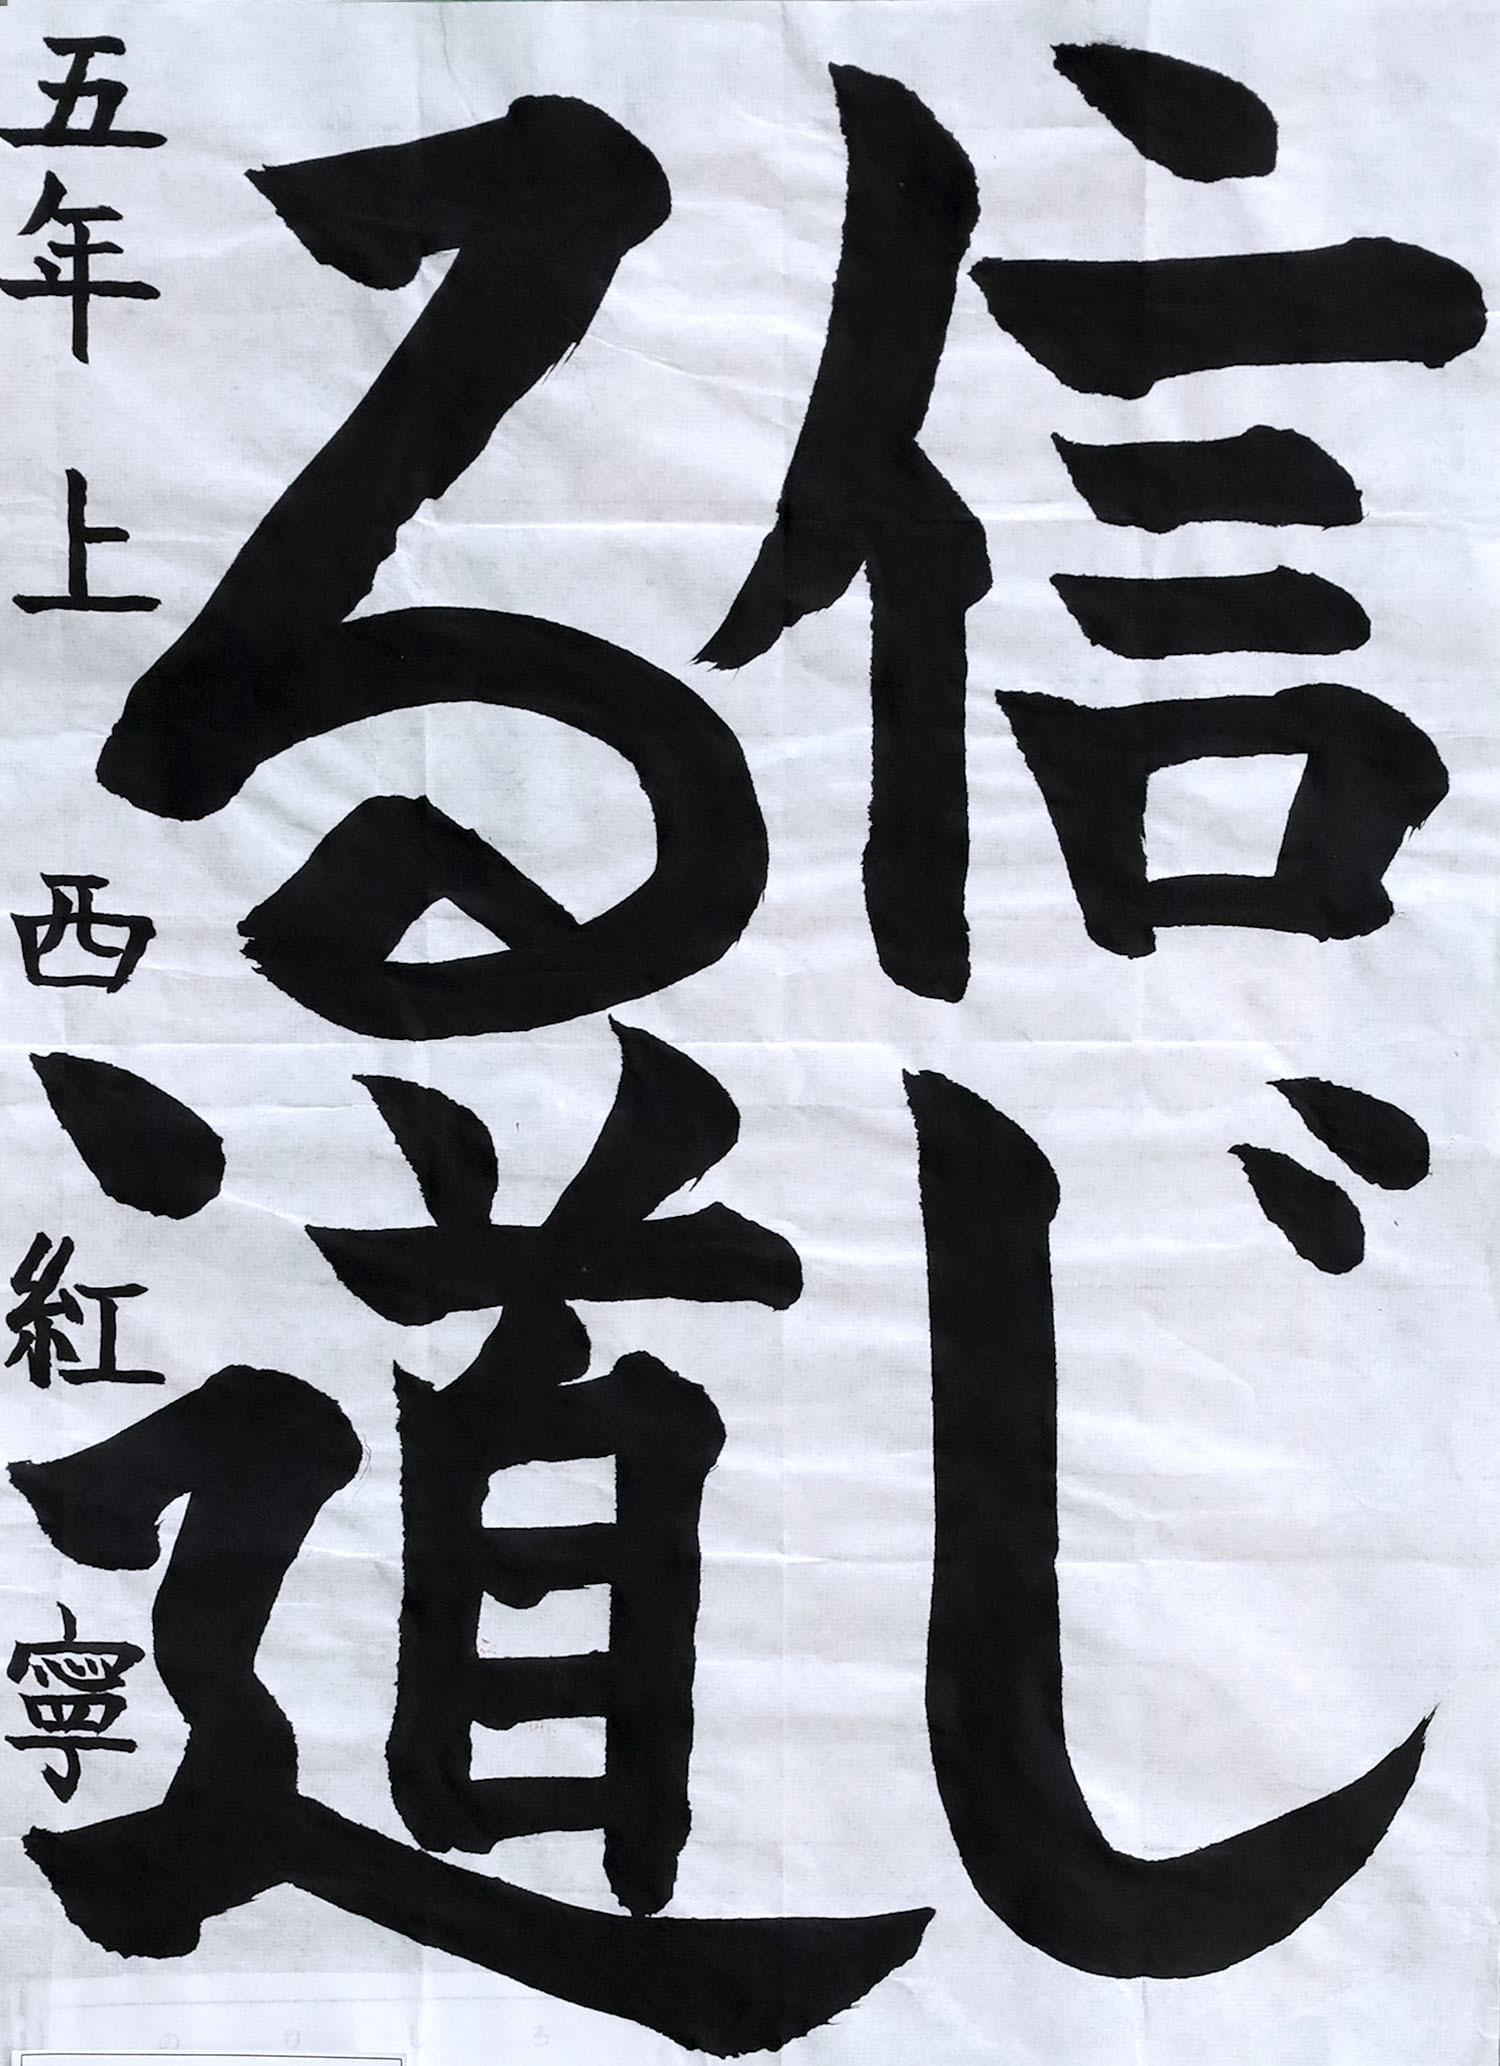 信じ
る道
五年 上西紅寧